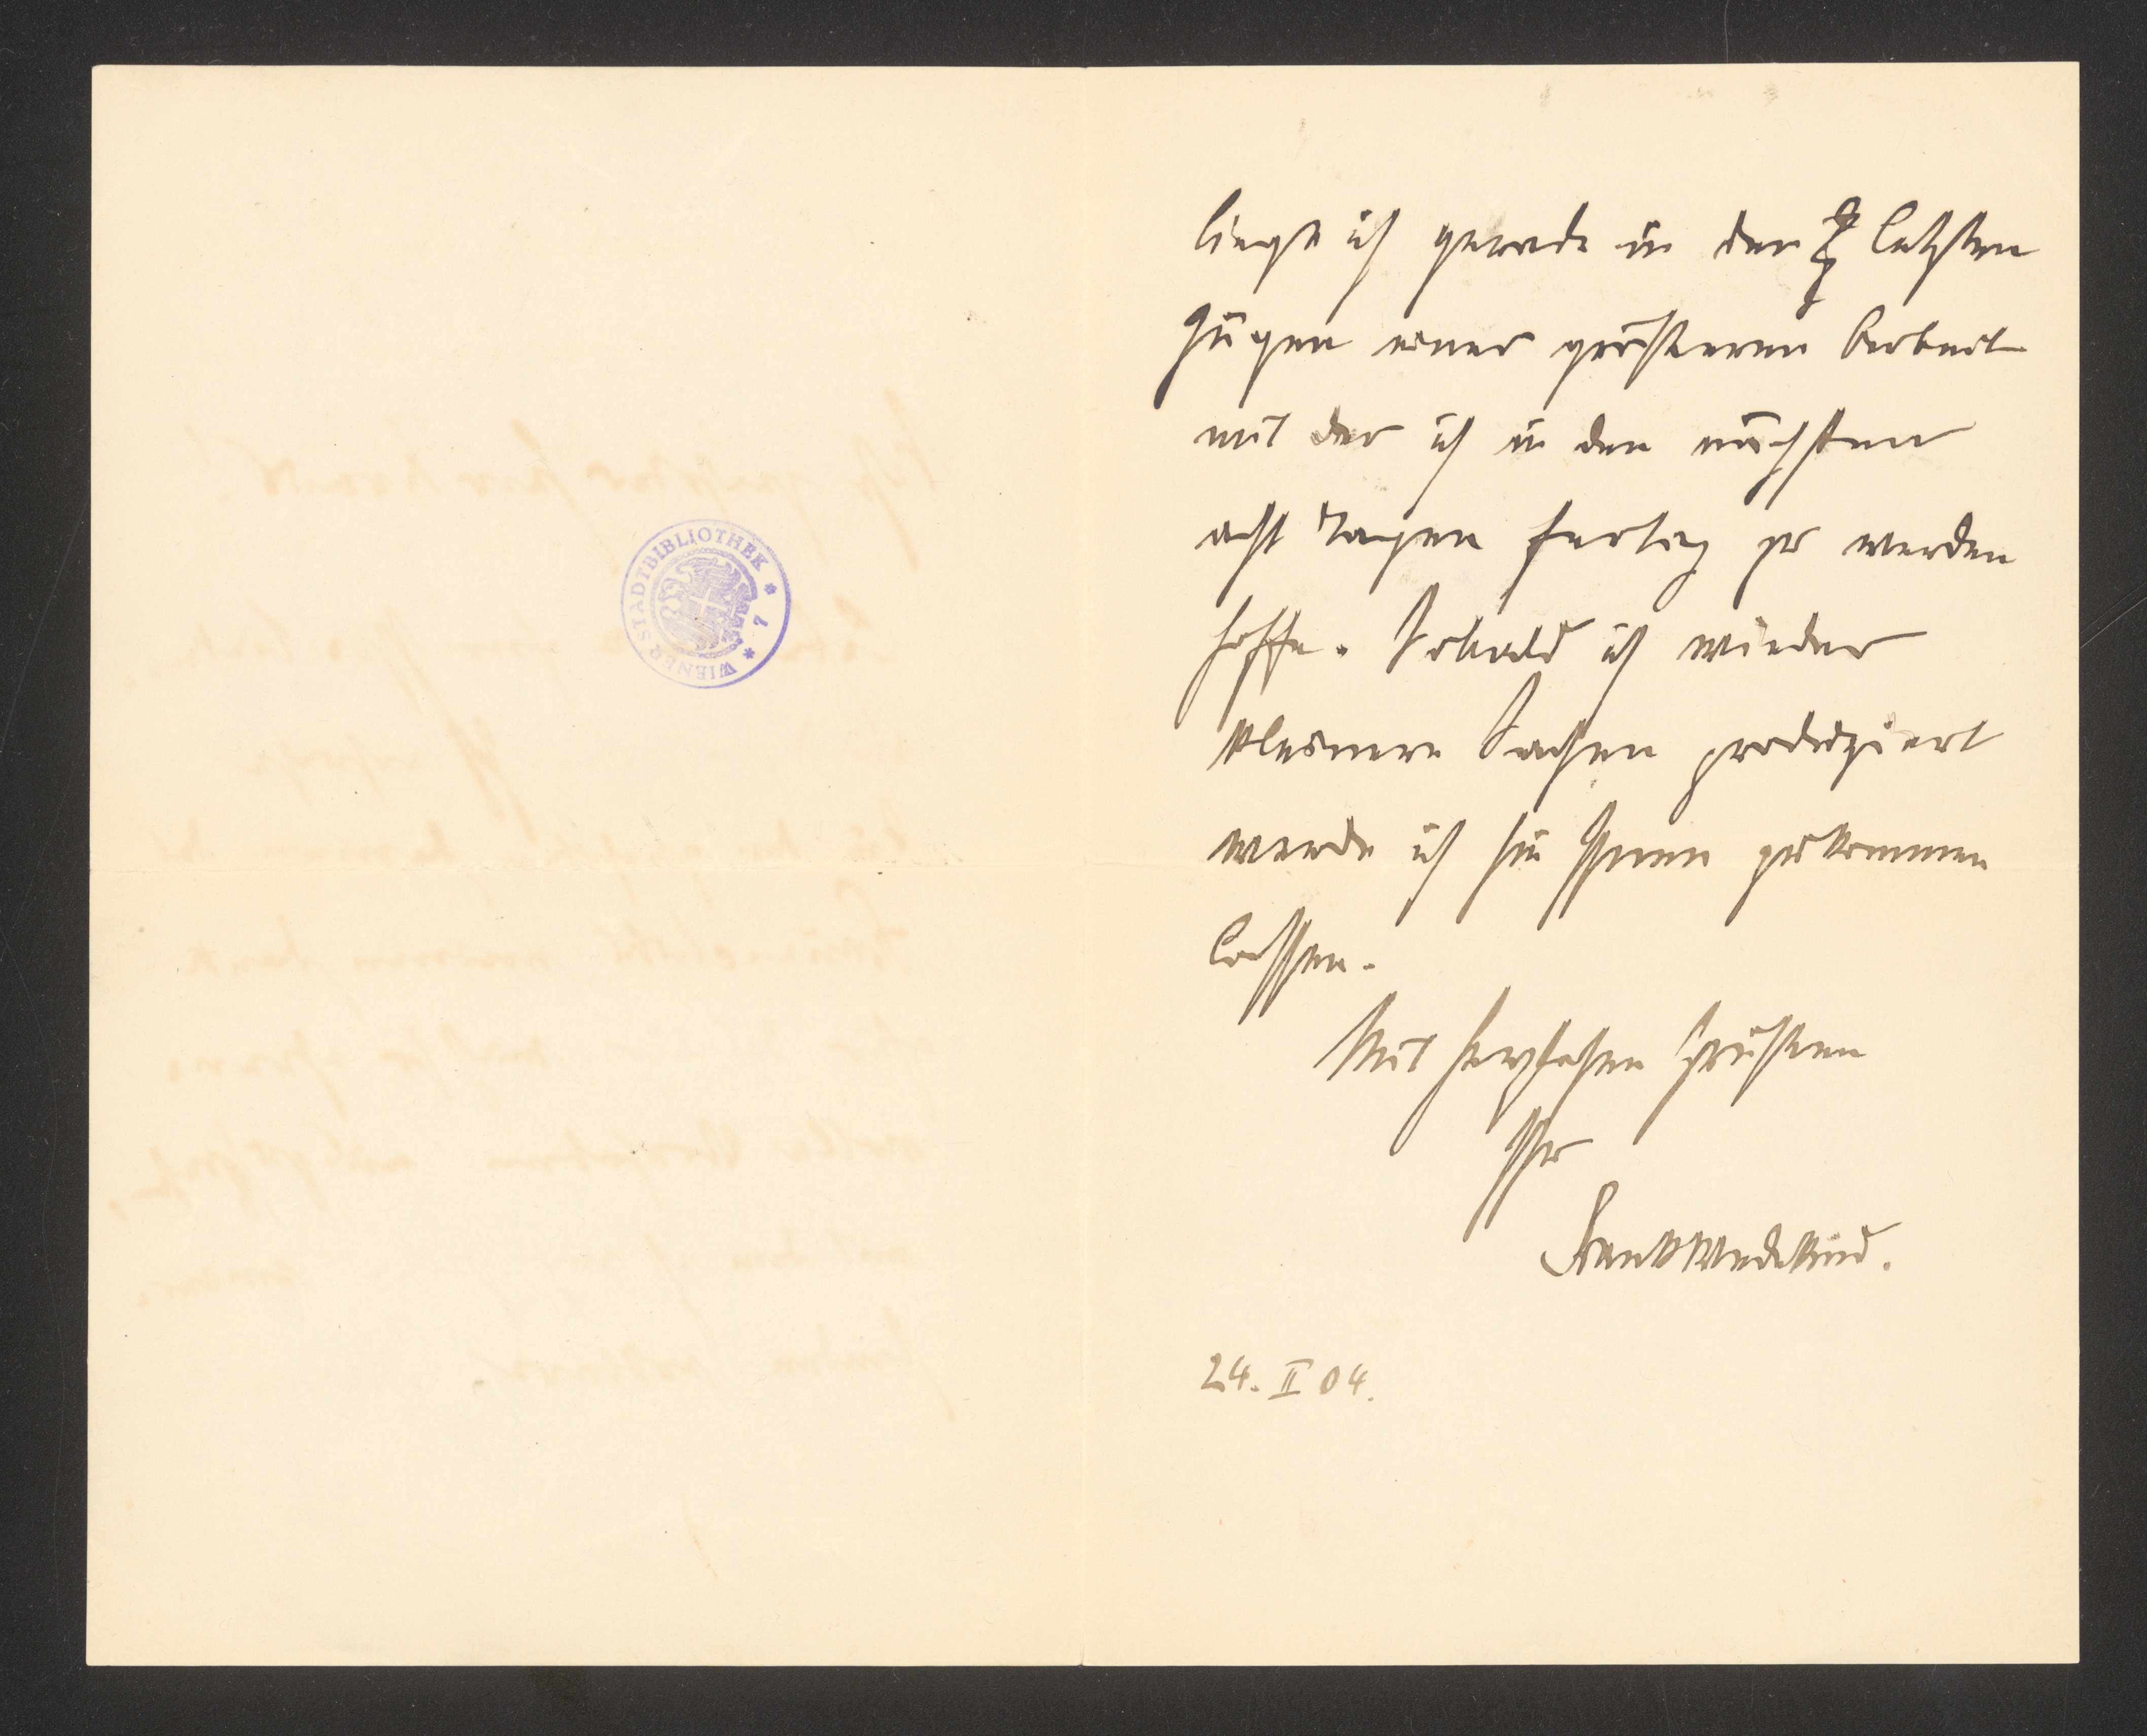 WIENER STADTBIBLIOTHEK * 7 *
liege ich gerade in den letzten
Zügen einer größeren Arbeit
mit der ich in den nächsten
acht Tagen fertig zu werden
hoffe. Sobald ich wieder
kleinere Sachen produziert
werde ich sie Ihnen zukommen
lassen.
Mit herzlichen Grüßen
Ihr
FrankWedekind.
24. II 04.